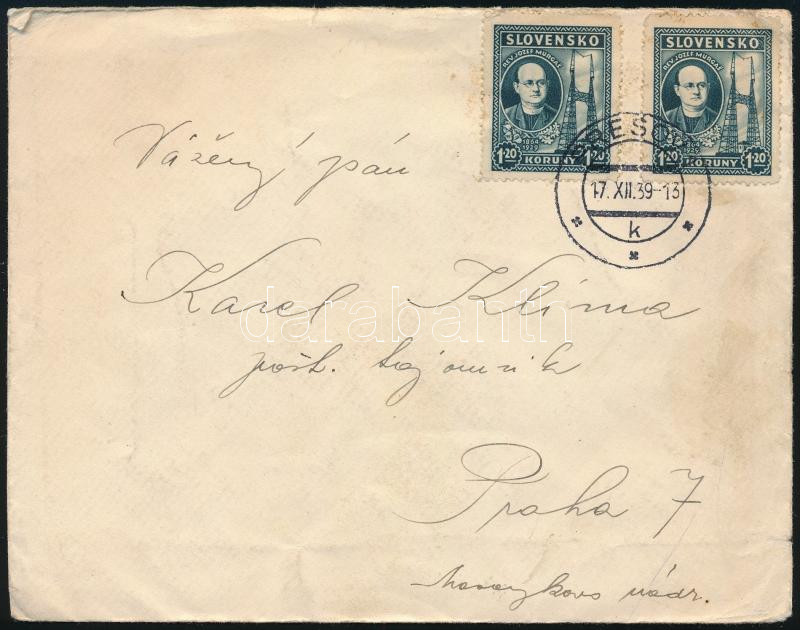 SLOVENSKO SLOVENSKO
REV. JOZEF MURGAŠ REV. JOZEF MURGAŠ
1864 1929 1864 1929
1.20 KORUNY 1.20 1.20 KORUNY 1.20
17.XII.39-13
k
Vážený pán
Karel Klíma
darabanth
pošt. tajomník
Praha 7
Masarykovo nádr.